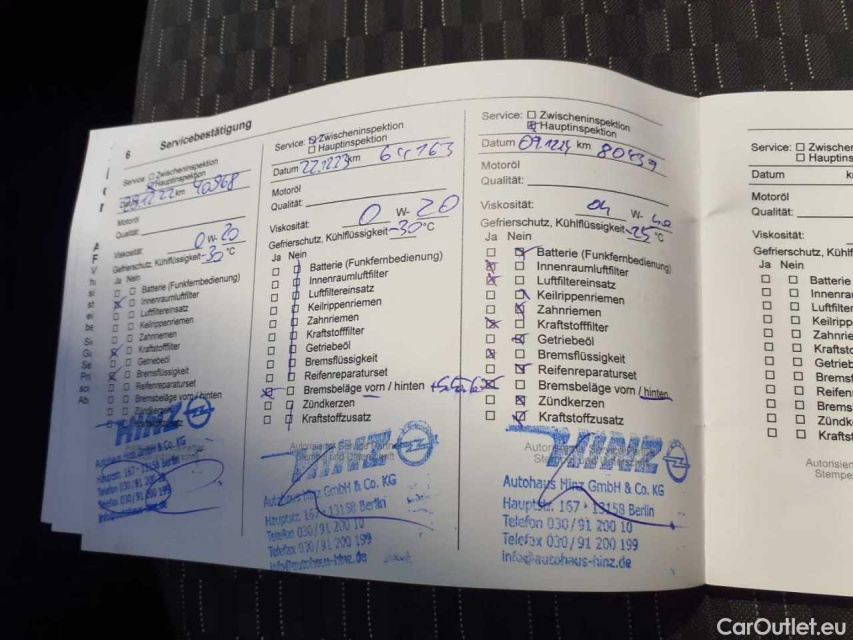 6 Servicebestätigung
Service: Zwischeninspektion
Hauptinspektion
Datum km 40968
Motoröl
Qualität:
Viskosität: 0 W- 20
Gefrierschutz, Kühlflüssigkeit -30 °C
Ja Nein
Batterie (Funkfernbedienung)
Innenraumluftfilter
Luftfiltereinsatz
Keilrippenriemen
Zahnriemen
Kraftstofffilter
Getriebeöl
Bremsflüssigkeit
Reifenreparaturset
Bremsbeläge vorn / hinten
Zündkerzen
HINZ
Autohaus Hinz GmbH & Co. KG
Hauptstr. 167 · 13158 Berlin
Telefon 030/91 200 10
Telefax 030/91 200 199
Service: Zwischeninspektion
Hauptinspektion
Datum 22.12.23 km 64163
Motoröl
Qualität:
Viskosität: 0 W- 20
Gefrierschutz, Kühlflüssigkeit -30 °C
Ja Nein
Batterie (Funkfernbedienung)
Innenraumluftfilter
Luftfiltereinsatz
Keilrippenriemen
Zahnriemen
Kraftstofffilter
Getriebeöl
Bremsflüssigkeit
Reifenreparaturset
Bremsbeläge vorn / hinten
Zündkerzen
Kraftstoffzusatz
HINZ
Autohaus Hinz GmbH & Co. KG
Hauptstr. 167 · 13158 Berlin
Telefon 030/91 200 10
Telefax 030/91 200 199
info@autohaus-hinz.de
Service: Zwischeninspektion
Hauptinspektion
Datum 09.12.24 km 80439
Motoröl
Qualität:
Viskosität: W-
Gefrierschutz, Kühlflüssigkeit -25 °C
Ja Nein
Batterie (Funkfernbedienung)
Innenraumluftfilter
Luftfiltereinsatz
Keilrippenriemen
Zahnriemen
Kraftstofffilter
Getriebeöl
Bremsflüssigkeit
Reifenreparaturset
Bremsbeläge vorn / hinten
Zündkerzen
Kraftstoffzusatz
HINZ
Autohaus Hinz GmbH & Co. KG
Hauptstr. 167 · 13158 Berlin
Telefon 030/91 200 10
Telefax 030/91 200 199
info@autohaus-hinz.de
Service: Zwischen
Hauptinsp
Datum k
Motoröl
Qualität:
Viskosität:
Gefrierschutz, Kühlfl
Ja Nein
Batterie
Innenrau
Luftfilter
Keilripp
Zahnrie
Kraftsto
Getrieb
Bremsf
Reifen
Brems
Zündk
Kraftst
Autorisier
Stempe
CarOutlet.eu